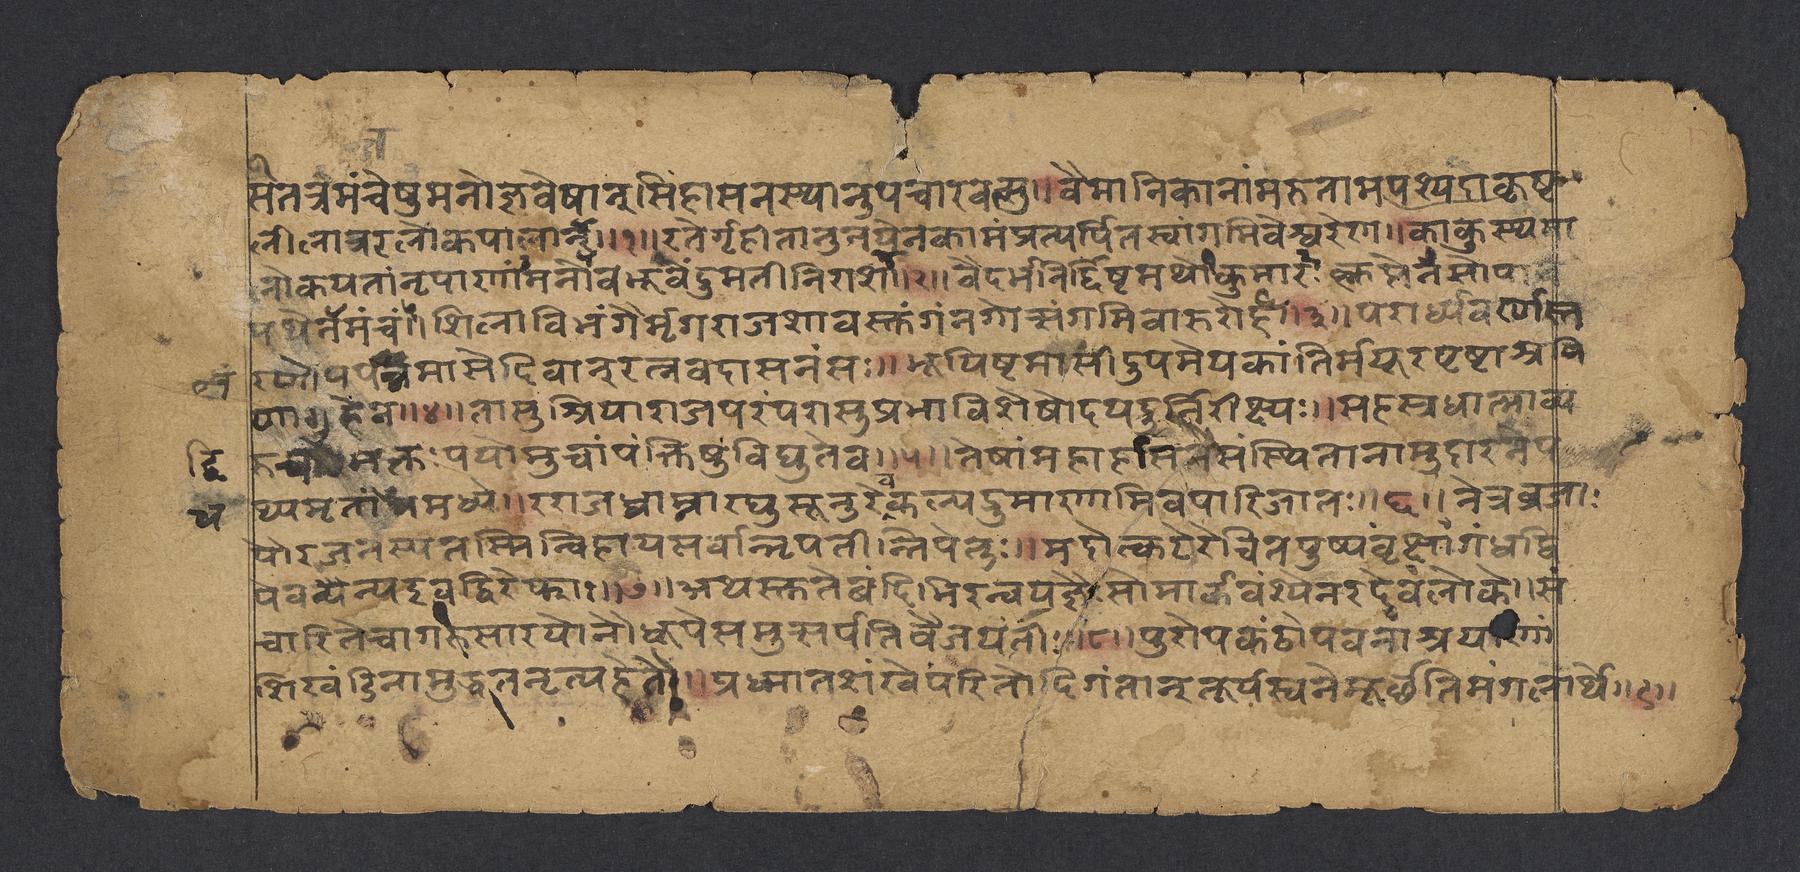 सतत्रमंचेषुमनोज्ञवेषान् सिंहासनस्थानुपचारवत्सु॥ वैमानिकानांमरुतामपश्यदाकृष्ट
लीलान्नरलोकपालान्॥१॥ रतेर्गृहीतानुनयेनकामंप्रत्यर्पितस्वांगमिवेश्वरेण॥ काकुत्स्थमा
लोकयतांनृपाणांमनोवभूवेंदुमतीनिराशं॥२॥ वैदर्भनिर्द्दिष्टमथोकुमारः कॢप्तेनसोपान
पथेनमंचं॥ शिलाविभंगैर्मृगराजशावस्तुंगंनगोत्संगमिवारुरोह॥३॥ परार्ध्यवर्णास्त
रणोपपन्नमासेदिवान्रत्नवदासनंसः॥ भूयिष्टमासीदुपमेयकांतिर्मयूरपृष्टाश्रयि
णागुहेन॥४॥ तासुश्रियाराजपरंपरासुप्रभाविशेषोदयदुर्निरीक्ष्यः॥ सहस्रधात्माव्य
रुचद्विभक्तः पयोमुचांपंक्तिषुविद्युतेव॥५॥ तेषांमहार्हासनसंस्थितानामुदारनेप
थ्यभृतांसमध्ये॥ रराजधाम्नारघुसूनुरेवकल्पद्रुमाणामिवपारिजातः॥६॥ नेत्रव्रजाः
पौरजनस्यतस्मिन्विहायसर्वान्नृपतीन्निपेतुः॥ मदोत्कटेरेचितपुष्पवृक्षागंधद्वि
पेवन्येन्यइवद्विरेफाः॥७॥ अथस्तुतेबंदिभिरन्वयज्ञैःसोमार्कवंश्येनरदेवलोके॥ सं
चारितेचागरुसारयोनौधूपेसमुत्सर्पतिवैजयंतीः॥८॥ पुरोपकंठोपवनाश्रयाणां
शिखंडिनामुद्धतनृत्यहेतौ॥ प्रध्मातशंखेपरितोदिगंतान्तूर्यस्वनेमूर्छतिमंगलार्थे॥९॥